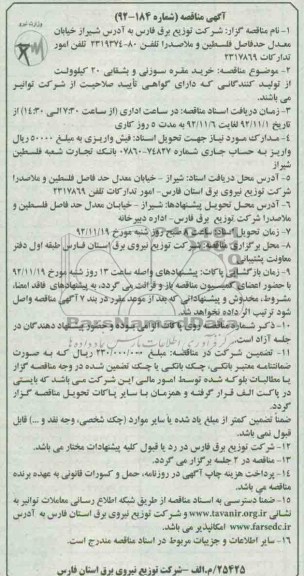 آگهی مناقصه (شماره ۱۸۴-۹۲)
۱- نام مناقصه گزار: شرکت توزیع برق فارس به آدرس شیراز خیابان
معدل حدفاصل فلسطین و ملاصدرا تلفن ۸۰-۲۳۱۹۳۷۴ تلفن امور
تدارکات ۲۳۱۷۸۶۹
۲- موضوع مناقصه: خرید مقره سوزنی و بشقابی ۲۰ کیلوولت
از تولید کنندگانی که دارای گواهی تأیید صلاحیت از شرکت توانیر
می باشند.
۳- زمان دریافت اسناد مناقصه: در ساعت اداری (از ساعت ۷:۳۰ الی ۱۴:۳۰) از
تاریخ ۹۲/۱۱/۱ لغایت ۹۲/۱۱/۶ به مدت ۵ روز کاری
۴- مدارک مورد نیاز جهت تحویل اسناد: فیش واریزی به مبلغ ۵۰۰۰۰ ریال
واریز به حساب جاری شماره ۰۷۸۶۰-۷۴۸۲۷ بانک تجارت شعبه فلسطین
شیراز
۵- آدرس محل دریافت اسناد: شیراز - خیابان معدل حد فاصل فلسطین و ملاصدرا
شرکت توزیع نیروی برق استان فارس- امور تدارکات تلفن ۲۳۱۷۸۶۹
۶- آدرس محل تحویل پیشنهادها: شیراز - خیابان معدل حد فاصل فلسطین و
ملاصدرا شرکت توزیع برق فارس- اداره دبیرخانه
۷- زمان تحویل ۸ صبح روز شنبه مورخ ۹۲/۱۱/۱۹
۸- محل برگزاری مناقصه: شرکت توزیع نیروی برق استان فارس طبقه اول دفتر
معاونت پشتیبانی
۹- زمان بازگشایی پاکات: پیشنهادهای واصله ساعت ۱۳ روز شنبه مورخ ۹۲/۱۱/۱۹
با حضور اعضای کمیسیون مناقصه باز و قرائت می گردد، به پیشنهادهای فاقد امضا،
مشروط، مخدوش و پیشنهاداتی که بعد از موعد مقرر در بند ۷ آگهی مناقصه واصل
شود ترتیب اثر داده نخواهد شد.
۱۰- ذکر شماره مناقصه روی پاکات الزامی بوده و حضور پیشنهاد دهندگان در
جلسه آزاد است.
۱۱- تضمین شرکت در مناقصه: مبلغ ۲۳۰/۰۰۰/۰۰۰ ریال که به صورت
ضمانتنامه معتبر بانکی، چک بانکی یا چک تضمین شده در وجه مناقصه گزار
یا مطالبات بلوکه شده توسط امور مالی این شرکت می باشد که بایستی
در پاکت الف قرار گرفته و همزمان با سایر پاکات تحویل مناقصه گزار
گردد.
ضمناً تضمین کمتر از مبلغ یاد شده یا سایر موارد (چک شخصی، وجه نقد و ...) قابل
قبول نمی باشد.
۱۲- شرکت توزیع برق فارس در رد یا قبول کلیه پیشنهادات مختار می باشد.
۱۳- مناقصه در ۲ جلسه برگزار می گردد.
۱۴- پرداخت هزینه چاپ آگهی در روزنامه، حمل و کسورات قانونی به عهده برنده
مناقصه می باشد.
۱۵- ضمناً دسترسی به اسناد مناقصه از طریق شبکه اطلاع رسانی معاملات توانیر به
نشانی www.tavanir.org.ir و شرکت توزیع نیروی برق استان فارس به آدرس
www.farsedc.ir امکانپذیر می باشد.
۱۶- سایر اطلاعات و جزییات مربوط در اسناد مناقصه مندرج است.
۲۵۴۲۵/م.الف - شرکت توزیع نیروی برق استان فارس